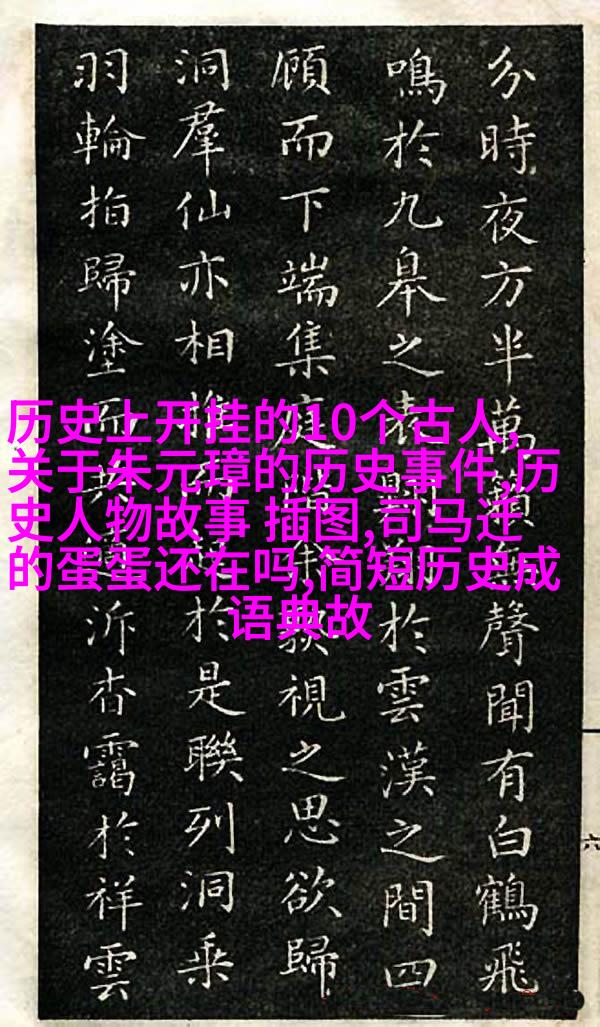 历史上开挂的10个古人,
关于朱元璋的历史事件,历
史人物故事 插图,司马迁
的蛋蛋还在吗,简短历史成
语典故
分時夜方半萬籟無聲聞有白鶴飛
鳴於九皋之於雲漢之間四
顧而下端集庭視之思欲歸
洞羣仙亦相於是聯列洞乘
羽輪拍歸塗而泝杳靄於祥雲
六